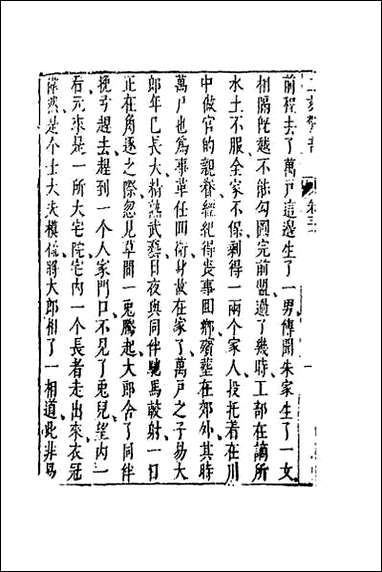 二刻驚奇 卷三十
前程去了萬戶這邊生了一男傳聞朱家生了一女
相隔旣越不能勾圓完前盟過了幾時工部在謫所
水土不服全家不保剩得一兩個家人投托着在川
中做官的親眷經紀得喪事回鄉殯塟在郊外其時
萬戶也爲事革任回衞身故在家了萬戶之子易大
郎年已長大精熟武藝日夜與同伴馳馬較射一日
正在角逐之際忽見草間一兎騰起大郎舍了同伴
挽弓趕去趕到一個人家門口不見了兎兒望内一
看元來是一所大宅院宅内一個長者走出來衣冠
偉然是个士大夫模樣將大郎相了一相道此非易